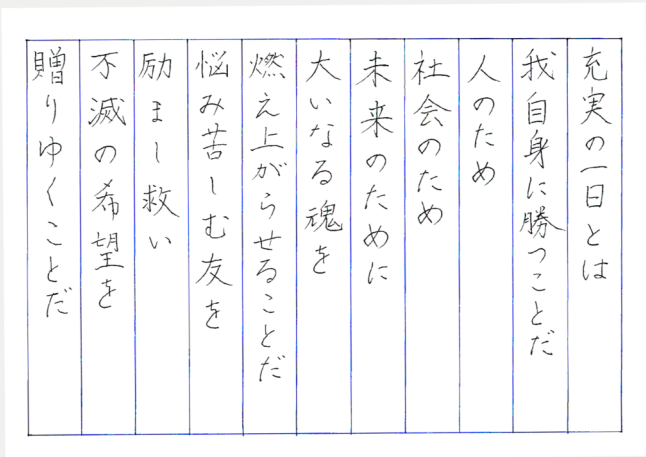 充実の一日とは
我自身に勝つことだ
人のため
社会のため
未来のために
大いなる魂を
燃え上がらせることだ
悩み苦しむ友を
励まし救い
不滅の希望を
贈りゆくことだ